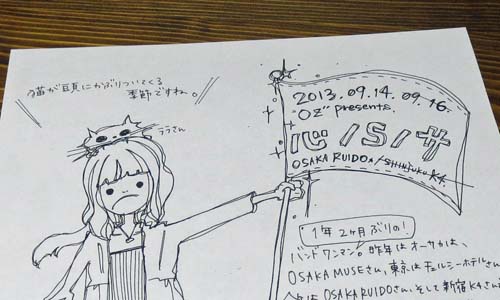 猫が頭にかぶりついてくる
季節ですね。
ララさん
2013.09.14. 09.16.
"Oz" presents.
心/S/サ
OSAKA RUIDO / SHINJUKU K4
1年2ヶ月ぶりの!
バンドワンマン。昨年はオーサカは、
OSAKA MUSEさん、東京はチェルシーホテルさん
OSAKA RUIDOさん、そして新宿K4さん